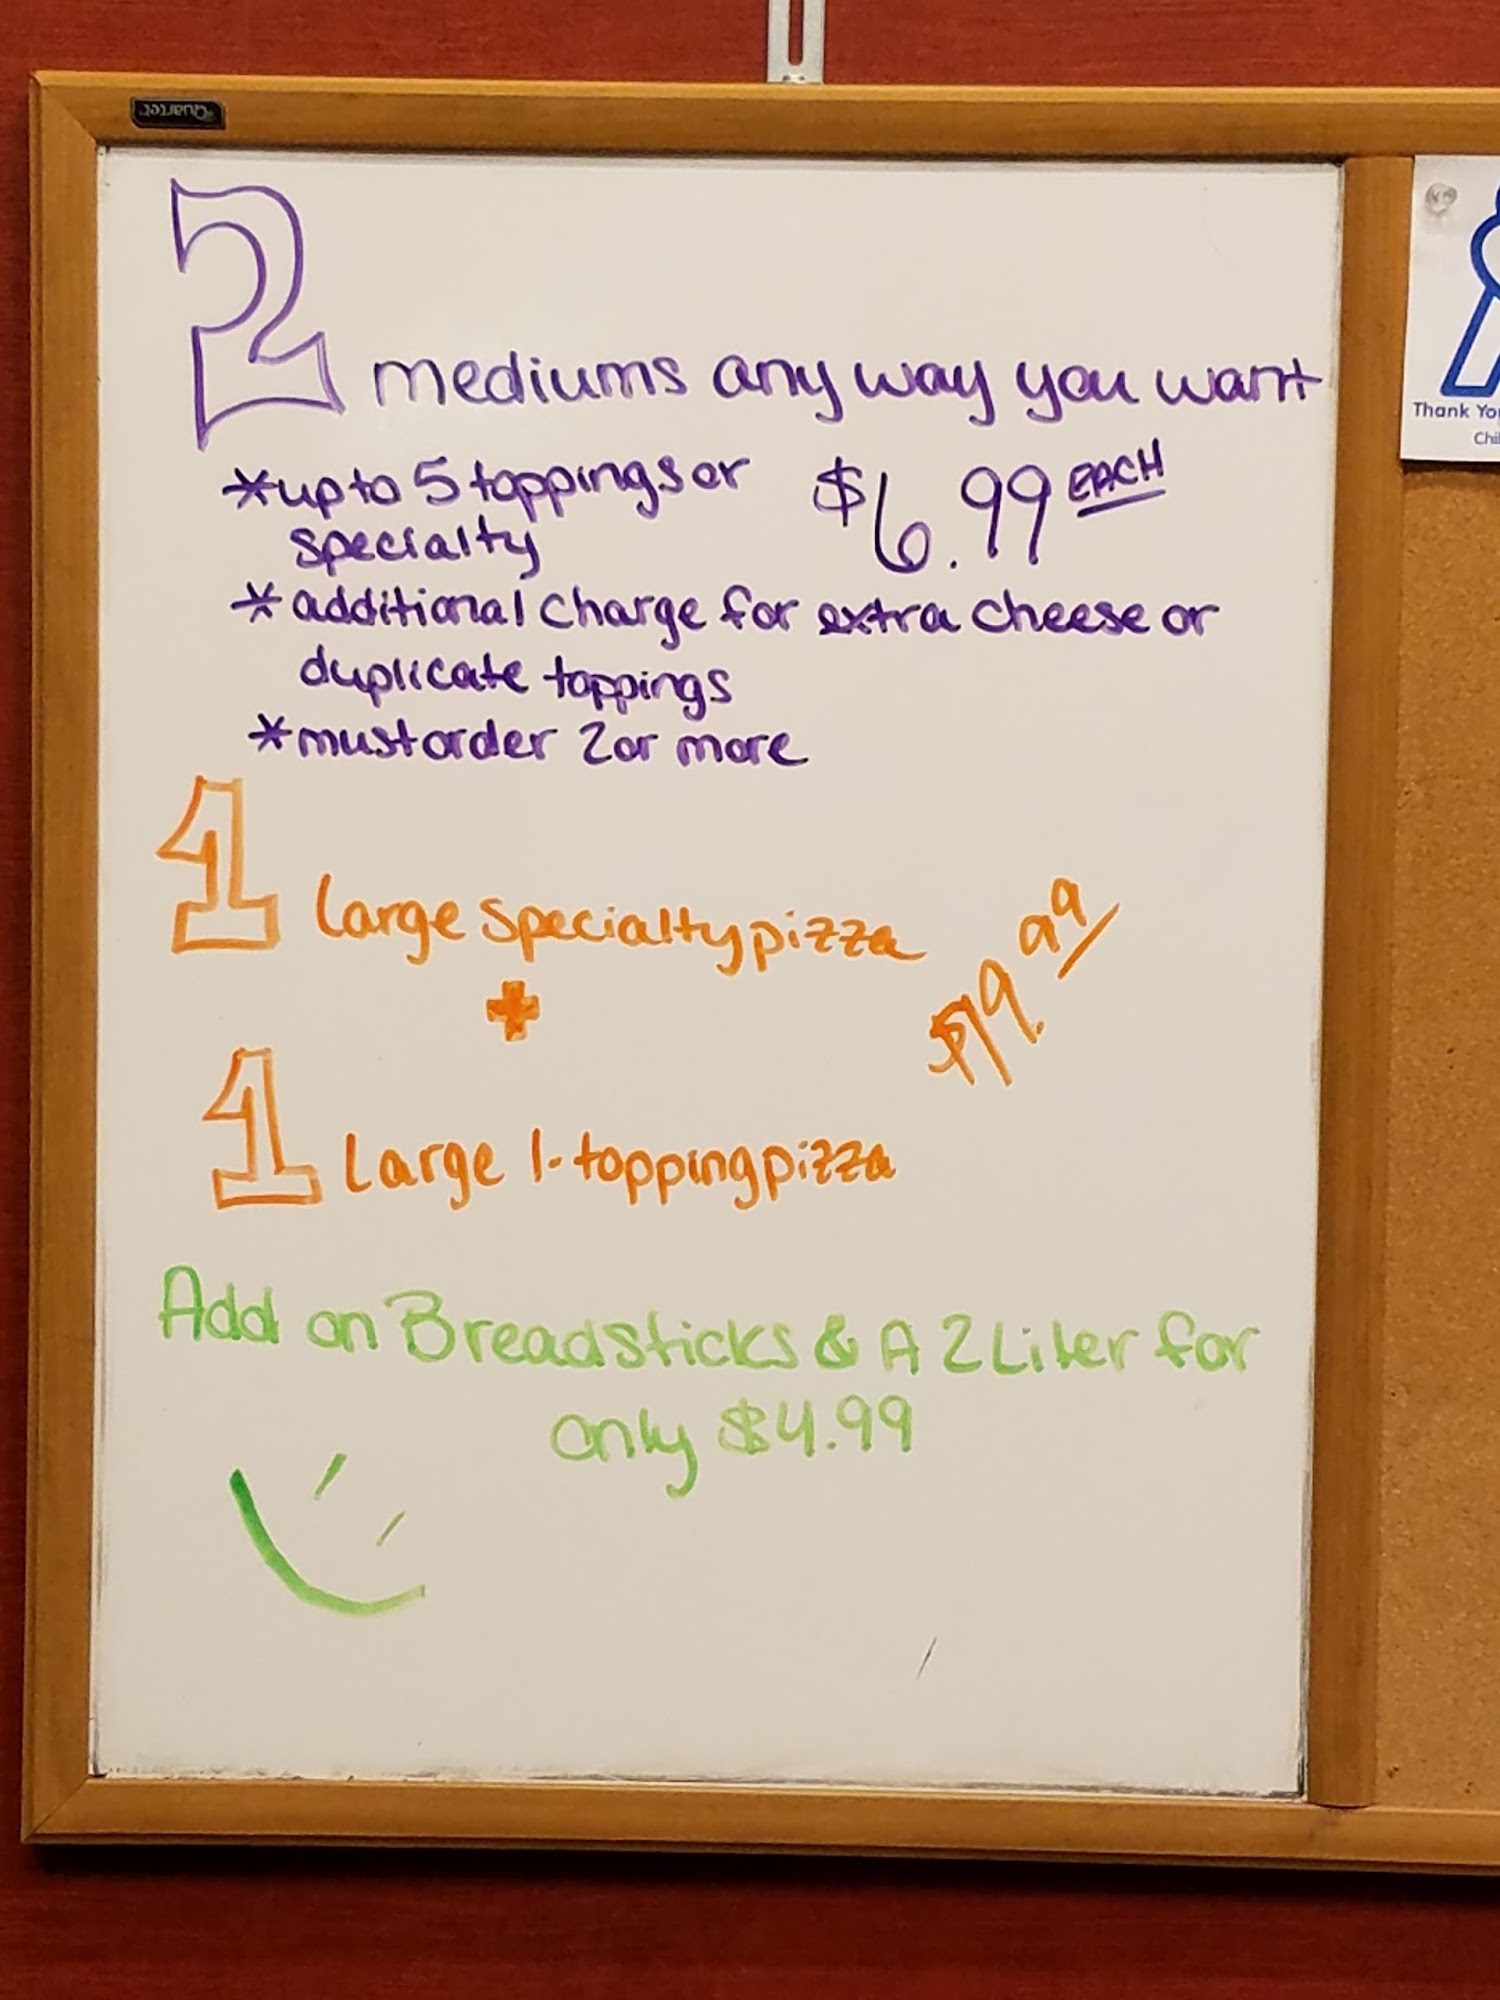 Quartet
2 mediums any way you want
*up to 5 toppings or
specialty
$6.99 EACH
*additional charge for extra cheese or
duplicate toppings
*must order 2 or more
1 Large specialty pizza
+
$19.99
1 Large 1-topping pizza
Add on Breadsticks & A 2 Liter for
only $4.99
Thank